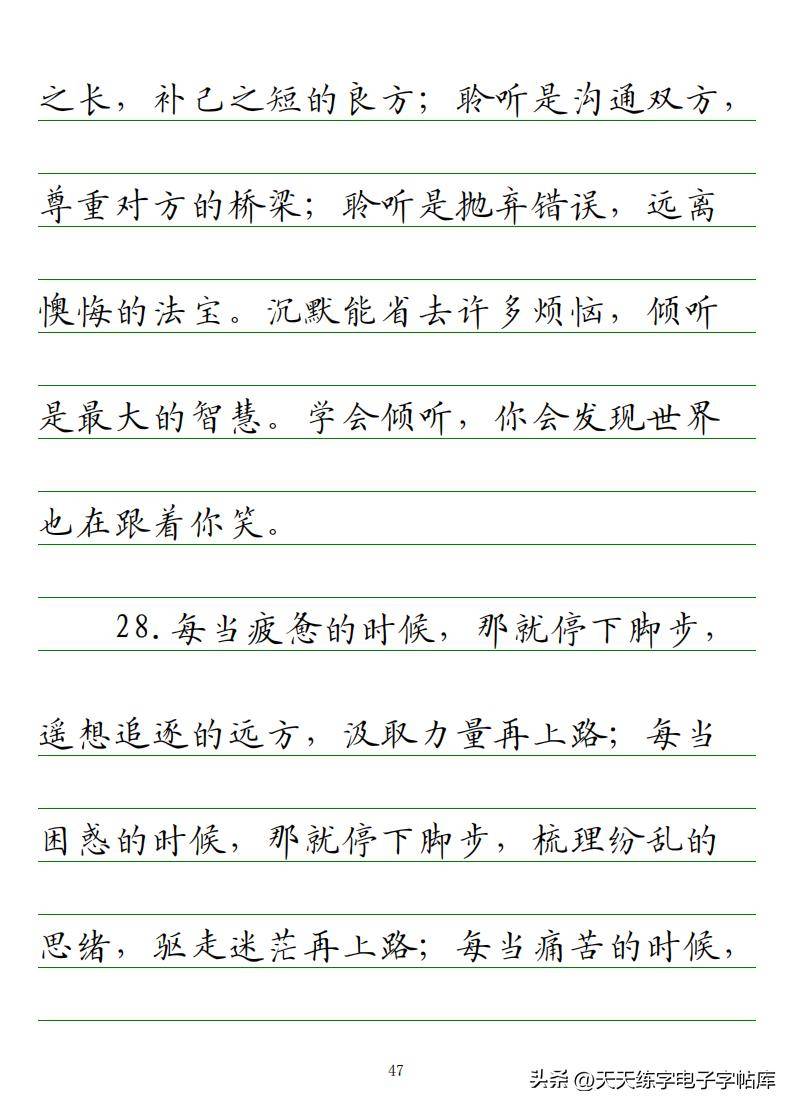 之长，补己之短的良方；聆听是沟通双方，
尊重对方的桥梁；聆听是抛弃错误，远离
懊悔的法宝。沉默能省去许多烦恼，倾听
是最大的智慧。学会倾听，你会发现世界
也在跟着你笑。
28.每当疲惫的时候，那就停下脚步，
遥想追逐的远方，汲取力量再上路；每当
困惑的时候，那就停下脚步，梳理纷乱的
思绪，驱走迷茫再上路；每当痛苦的时候，
47
头条 @天天练字电子字帖库